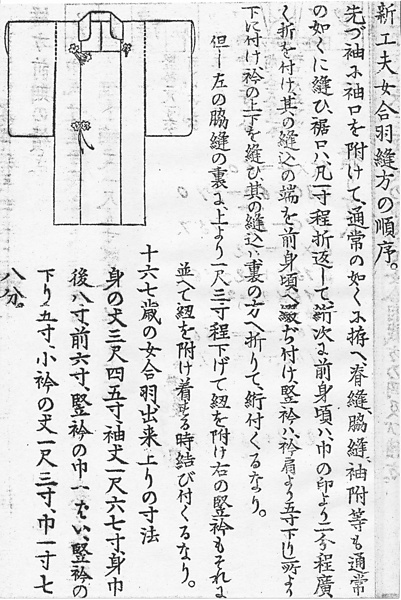 新工夫女合羽縫方の順序。
先づ袖に袖口を附けて、通常の如くに拵へ、脊縫、脇縫、袖附等も通常
の如くに縫ひ、裾口ハ、凡一寸程折返して、絎次に前身頃ハ巾の印より二分程廣
く折を付け、其の縫込の端を前身頃へ綴ぢ付け、竪衿ハ、衿肩より五寸下し所より
下に付け、衿の上下を縫ひ其の縫込ハ裏の方へ折りて、絎付くるなり。
但し左の脇縫の裏に、上より一尺三寸程下げて紐を付け右の竪衿もそれに
並べて紐を附け着せる時結び付くるなり。
十六七歳の女合羽出来上りの寸法
身の丈三尺四五寸、袖丈一尺六七寸、身巾
後八寸、前六寸、竪衿の巾一ぱい、竪衿の
下り五寸、小衿の丈一尺三寸、巾一寸七
八分。